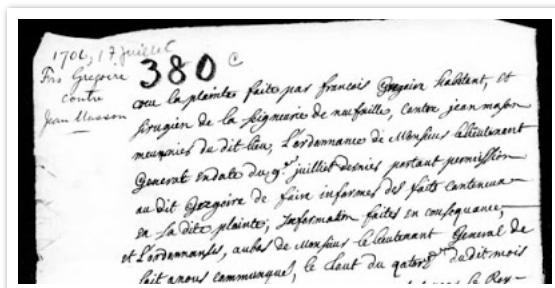 1706, 17 juillet
Frs Gregoire
contre
Jean Masson
380 c
veu la plainte faite par francois Gregoire habitant, et
sirugien de la seigneurie de neufville, contre jean mason
meusnier du dit lieu, L'ordonnance de Monsieur le lieutenant
General en date du 9e juillet dernier portant permission
au dit Gregoire de faire informer des faits contenus
en la dite plainte, Information faites en consequance,
et L'ordonnance, au bas de Monsieur le lieutenant General de
soit a nous communiqué, le tout du dudit mois